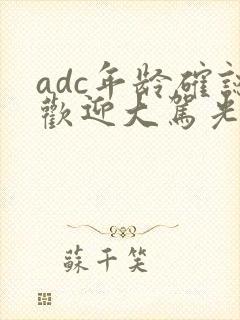 adc年龄確認
歡迎大駕光
蘇千笑